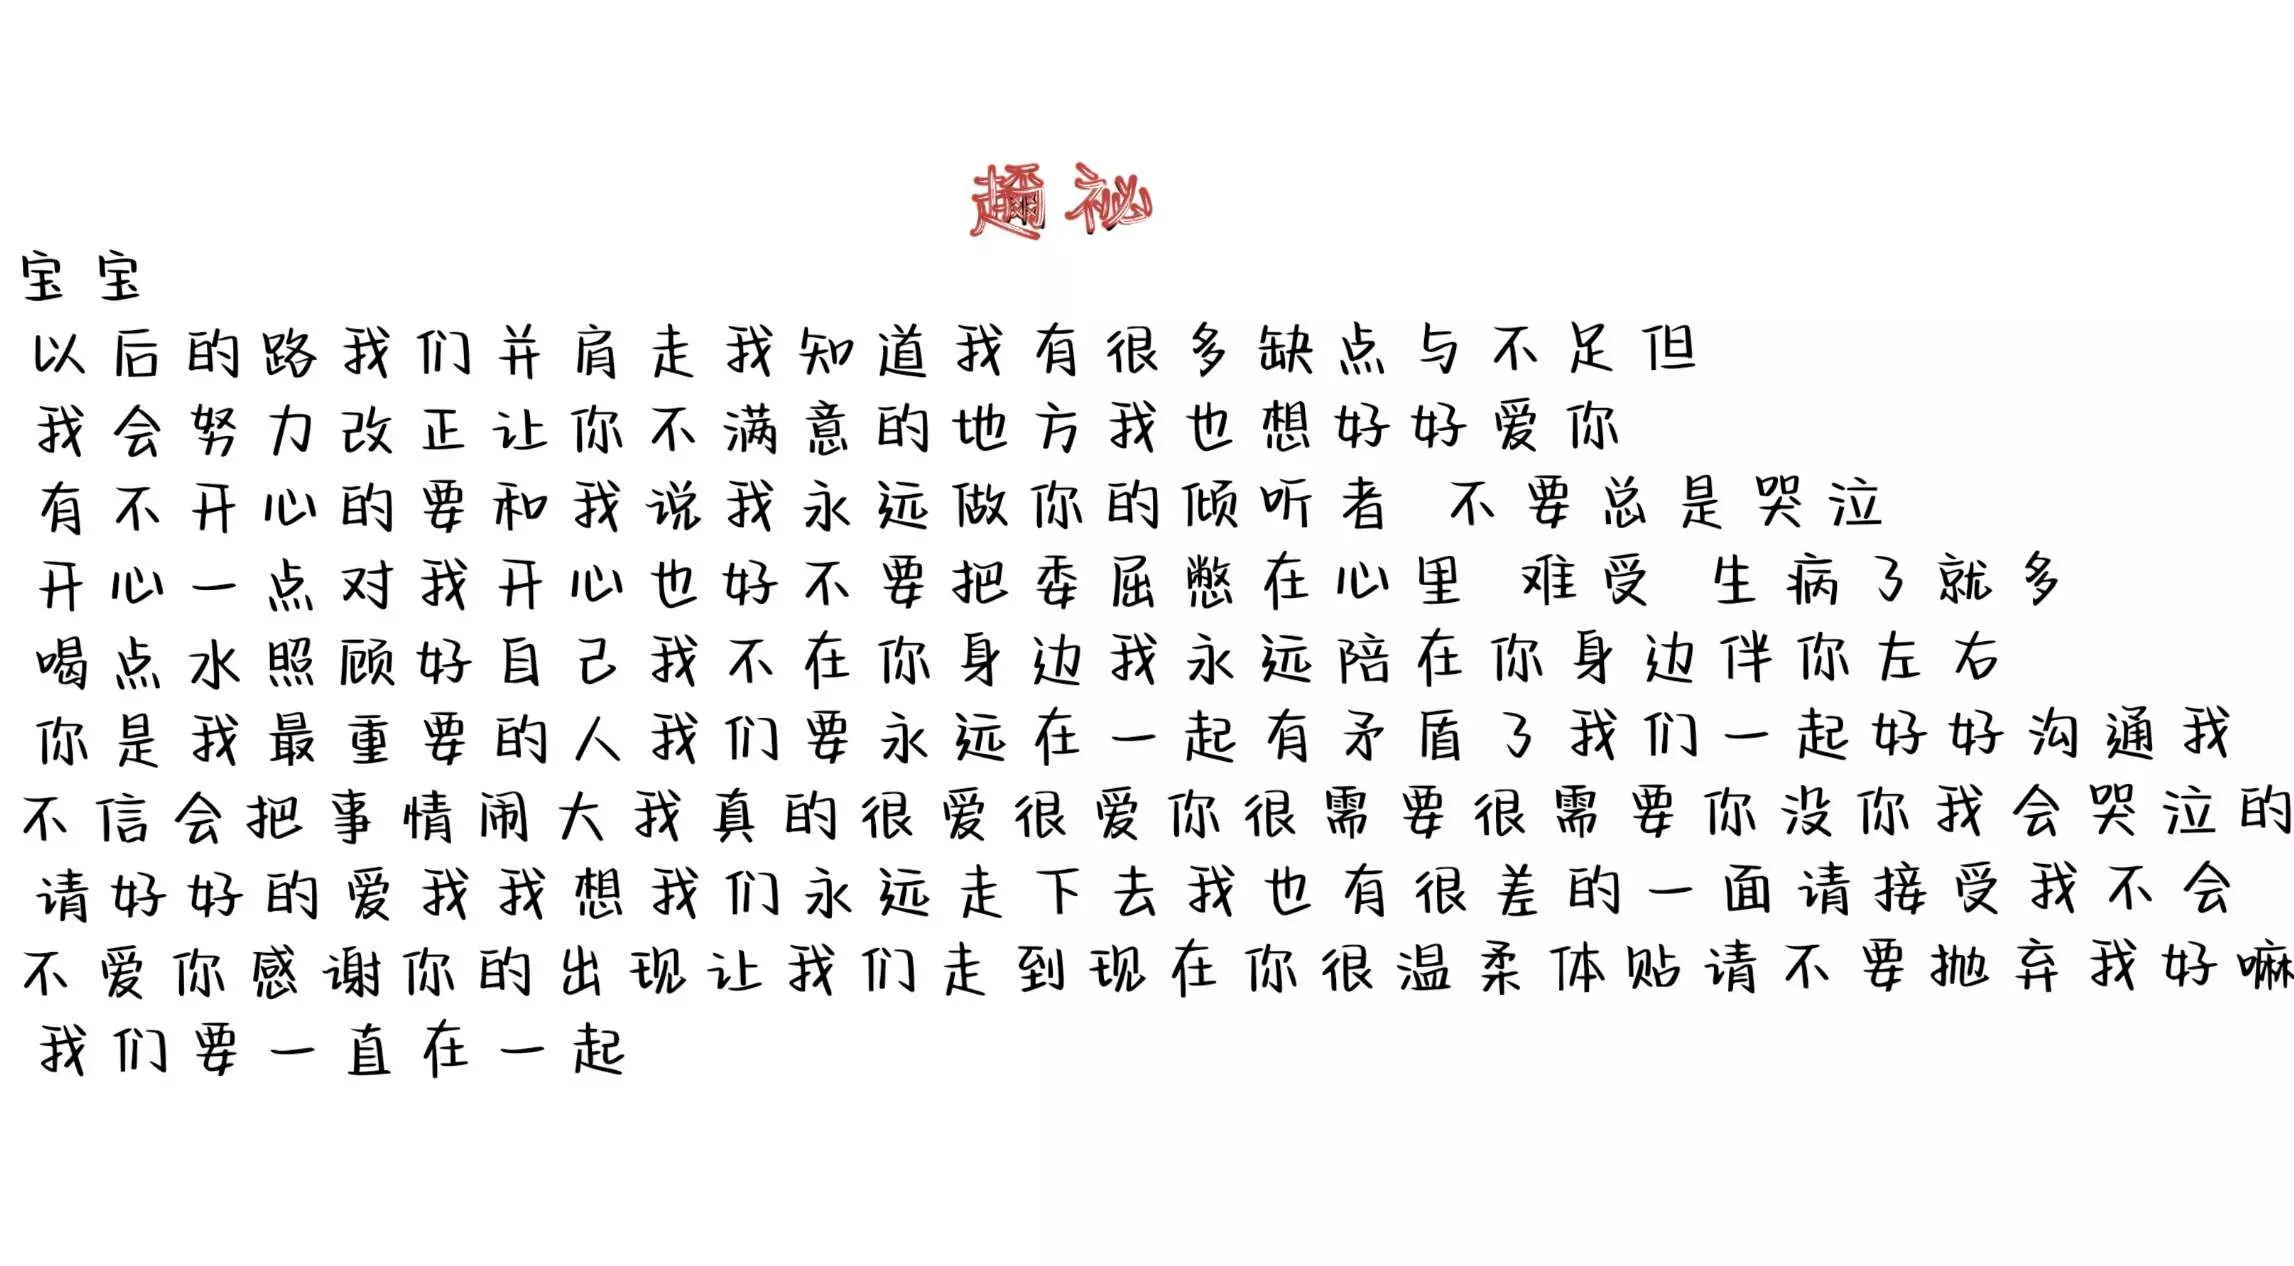 趲祕
宝宝
以后的路我们并肩走我知道我有很多缺点与不足但
我会努力改正让你不满意的地方我也想好好爱你
有不开心的要和我说我永远做你的倾听者 不要总是哭泣
开心一点对我开心也好不要把委屈憋在心里 难受 生病了就多
喝点水照顾好自己我不在你身边我永远陪在你身边伴你左右
你是我最重要的人我们要永远在一起有矛盾了我们一起好好沟通我
不信会把事情闹大我真的很爱很爱你很需要很需要你没你我会哭泣的
请好好的爱我我想我们永远走下去我也有很差的一面请接受我不会
不爱你感谢你的出现让我们走到现在你很温柔体贴请不要抛弃我好嘛
我们要一直在一起